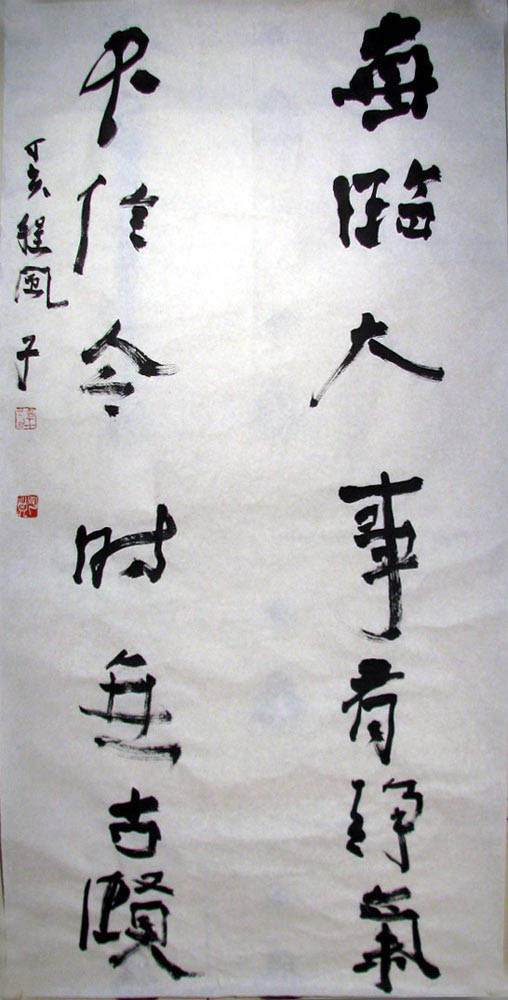 每臨大事有静氣
不信今时無古賢
丁亥程風子